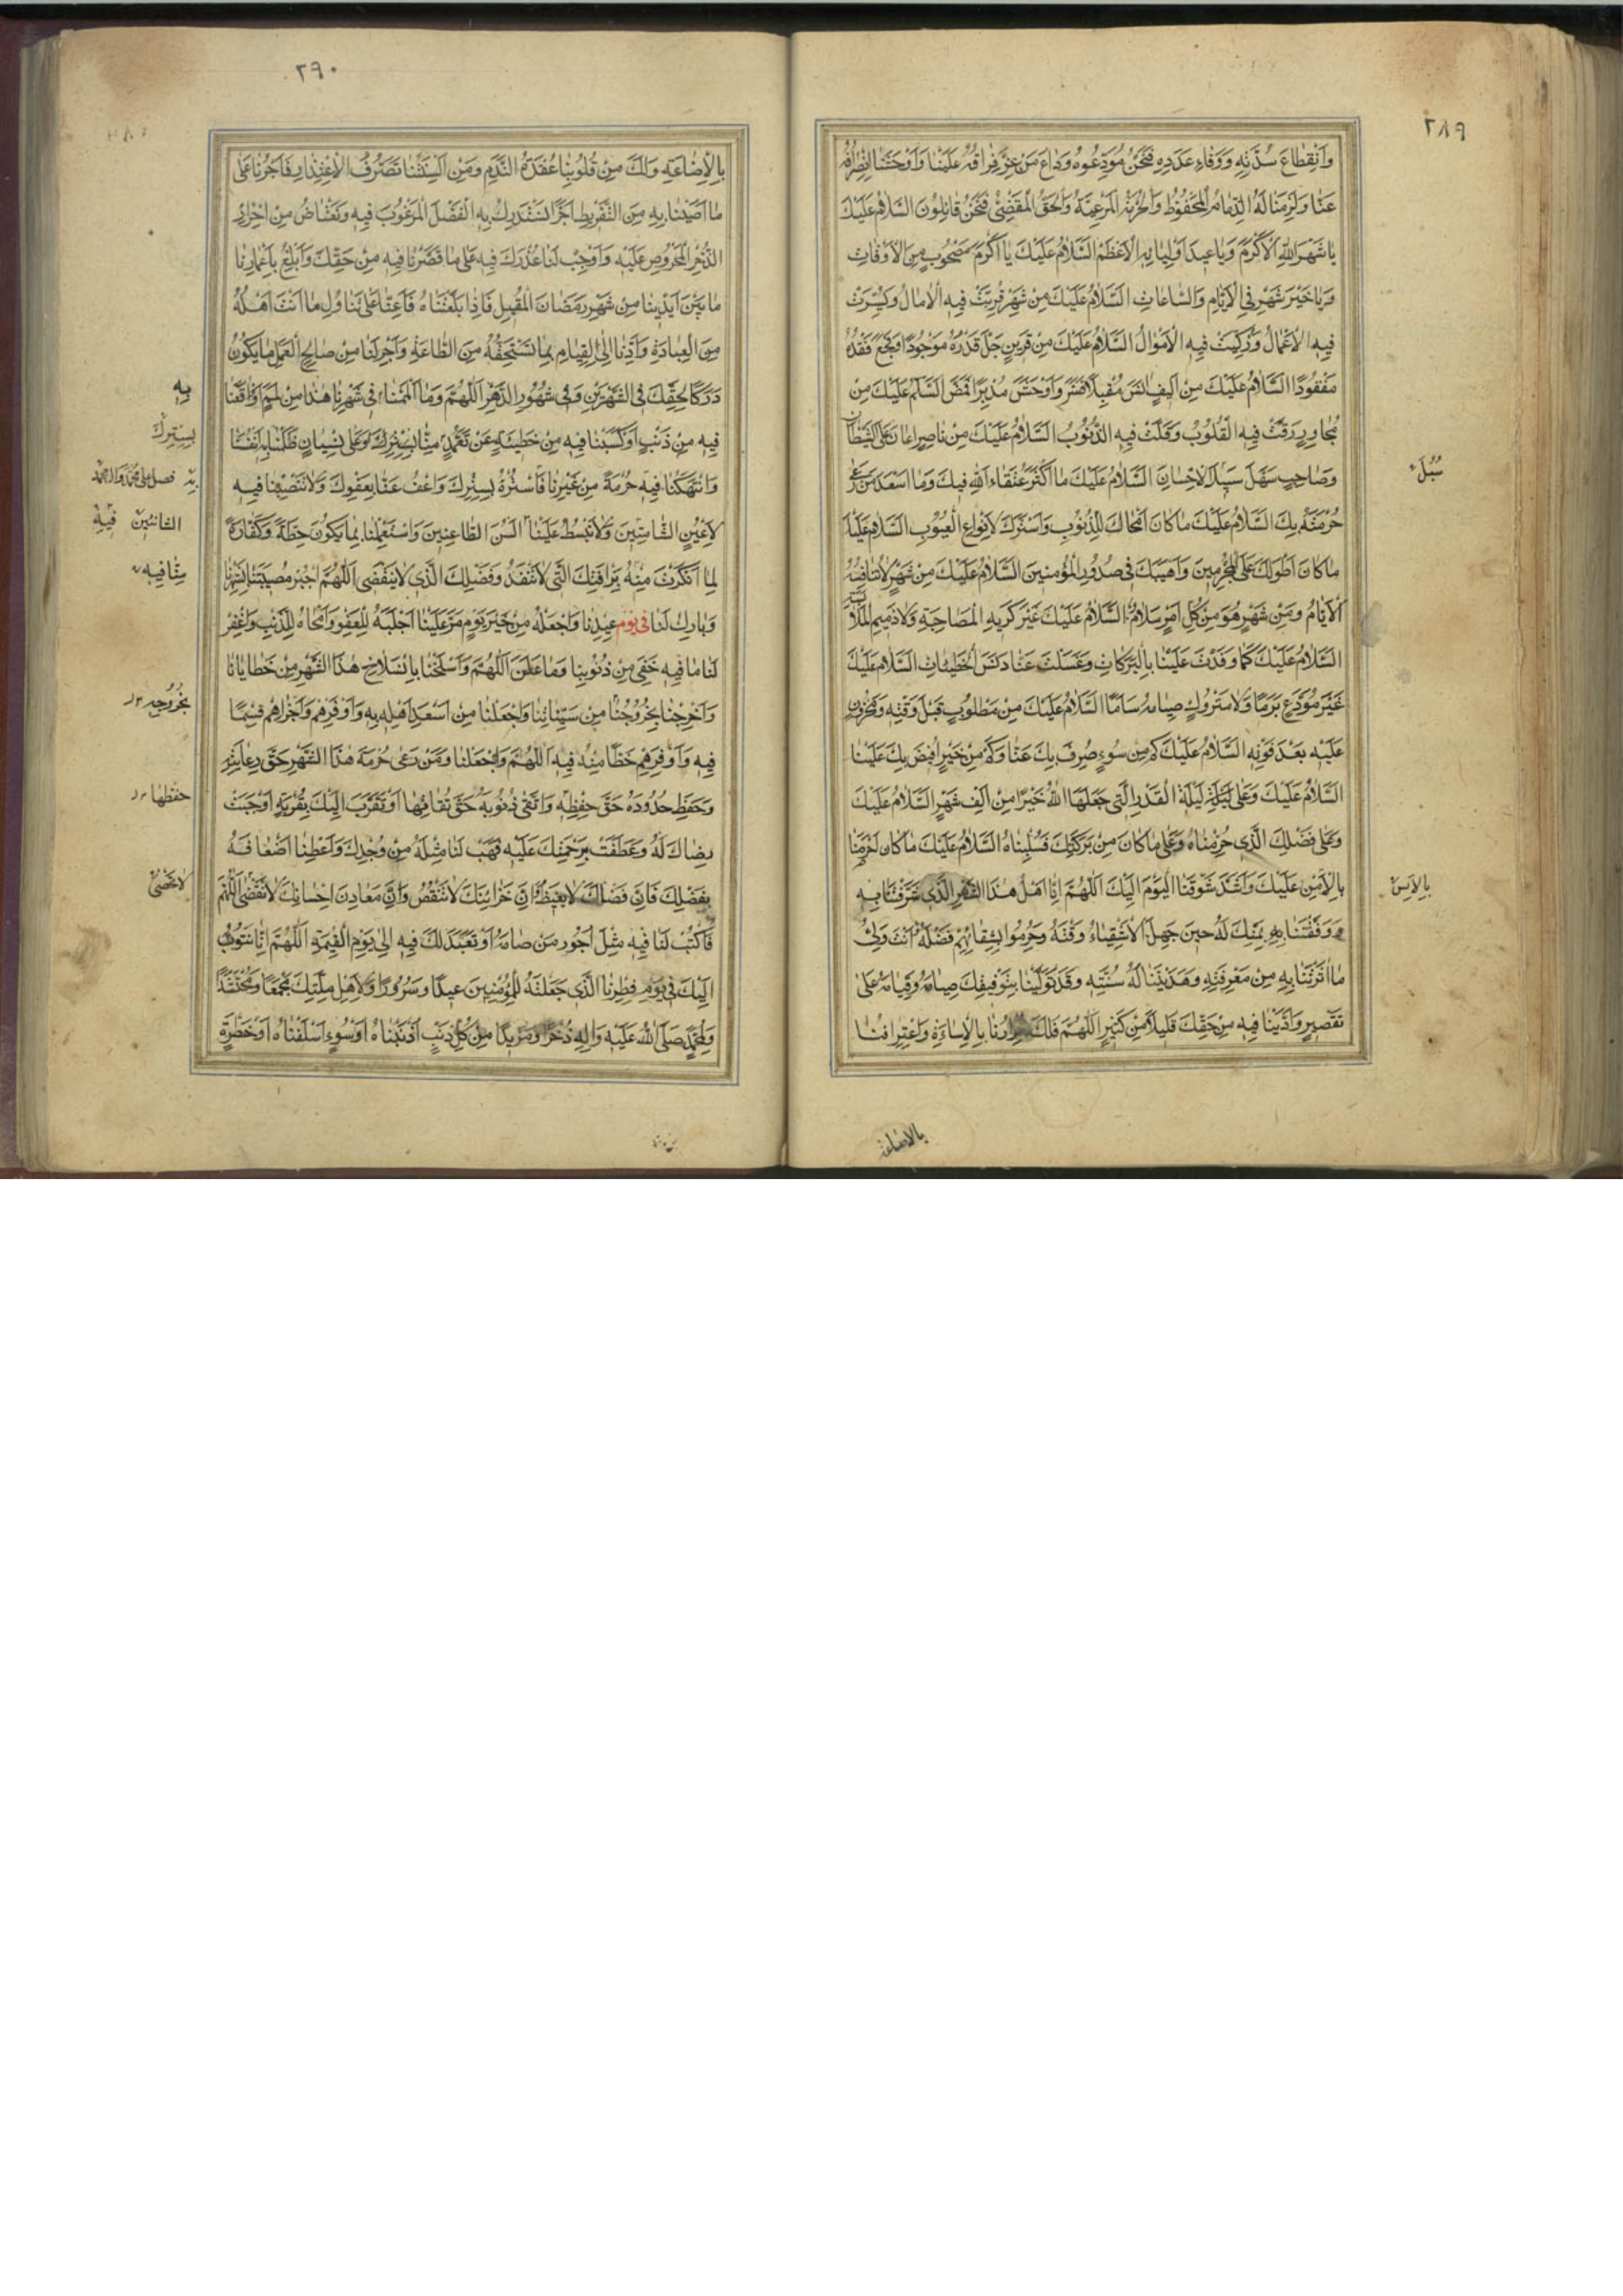 ٢٨٩
وَانْقِطاعِ مُدَّتِهِ وَوَفاءِ عَدَدِهِ فَنَحْنُ مُوَدِّعُوهُ وَداعَ مَنْ عَزَّ فِراقُهُ عَلَيْنا وَاَوْحَشَنا انْصِرافُهُ
عَنّا وَلَزِمَنا لَهُ الذِّمامُ الْمَحْفُوظُ وَالْحُرْمَةُ الْمَرْعِيَّةُ وَالْحَقُّ الْمَقْضِيُّ فَنَحْنُ قائِلُونَ السَّلامُ عَلَيْكَ
يا شَهْرَ اللهِ الْاَكْرَمَ وَيا عيدَ اَوْلِيائِهِ الْاَعْظَمَ السَّلامُ عَلَيْكَ يا اَكْرَمَ مَصْحُوبٍ مِنَ الْاَوْقاتِ
وَيا خَيْرَ شَهْرٍ فِي الْاَيّامِ وَالسّاعاتِ السَّلامُ عَلَيْكَ مِنْ شَهْرٍ قُرِّبَتْ فيهِ الْامالُ وَيُسِّرَتْ
فيهِ الْاَعْمالُ وَزُكِّيَتْ فيهِ الْاَمْوالُ السَّلامُ عَلَيْكَ مِنْ قَرينٍ جَلَّ قَدْرُهُ مَوْجُودًا وَفَجَّعَ فَقْدُهُ
مَفْقُودًا السَّلامُ عَلَيْكَ مِنْ اَليفٍ انَسَ مُقْبِلًا فَسَرَّ وَاَوْحَشَ مُدْبِرًا فَمَضَّ السَّلامُ عَلَيْكَ مِنْ
مُجاوِرٍ رَقَّتْ فيهِ الْقُلُوبُ وَقَلَّتْ فيهِ الذُّنُوبُ السَّلامُ عَلَيْكَ مِنْ ناصِرٍ اَعانَ عَلَى الشَّيْطانِ
وَصاحِبٍ سَهَّلَ سَبيلَ الْاِحْسانِ السَّلامُ عَلَيْكَ ما اَكْثَرَ عُتَقاءَ اللهِ فيكَ وَما اَسْعَدَ مَنْ رَعى
سُبُلَ
حُرْمَتَهُ بِكَ السَّلامُ عَلَيْكَ ما كانَ اَمْحاكَ لِلذُّنُوبِ وَاَسْتَرَكَ لِاَنْواعِ الْعُيُوبِ السَّلامُ عَلَيْكَ
ما كانَ اَطْوَلَكَ عَلَى الْمُجْرِمينَ وَاَهْيَبَكَ في صُدُورِ الْمُؤْمِنينَ السَّلامُ عَلَيْكَ مِنْ شَهْرٍ لا تُنافِسُهُ
الْاَيّامُ وَمِنْ شَهْرٍ هُوَ مِنْ كُلِّ اَمْرٍ سَلامٌ السَّلامُ عَلَيْكَ غَيْرَ كَريهِ الْمُصاحَبَةِ وَلا ذَميمِ الْمُلابَسَةِ
السَّلامُ عَلَيْكَ كَما وَفَدْتَ عَلَيْنا بِالْبَرَكاتِ وَغَسَلْتَ عَنّا دَنَسَ الْخَطيئاتِ السَّلامُ عَلَيْكَ
غَيْرَ مُوَدَّعٍ بَرَمًا وَلا مَتْرُوكٍ صِيامُهُ سَاَمًا السَّلامُ عَلَيْكَ مِنْ مَطْلُوبٍ قَبْلَ وَقْتِهِ وَمَحْزُونٍ
عَلَيْهِ بَعْدَ فَوْتِهِ السَّلامُ عَلَيْكَ كَمْ مِنْ سُوءٍ صُرِفَ بِكَ عَنّا وَكَمْ مِنْ خَيْرٍ اُفيضَ بِكَ عَلَيْنا
السَّلامُ عَلَيْكَ وَعَلى لَيْلَةِ الْقَدْرِ الَّتي جَعَلَهَا اللهُ خَيْرًا مِنْ اَلْفِ شَهْرٍ السَّلامُ عَلَيْكَ
وَعَلى فَضْلِكَ الَّذي حُرِمْناهُ وَعَلى ما كانَ مِنْ بَرَكَتِكَ فَسُلِبْناهُ السَّلامُ عَلَيْكَ ما كانَ اَحْرَصَنا
بِالْاَمْسِ عَلَيْكَ وَاَشَدَّ شَوْقَنَا الْيَوْمَ اِلَيْكَ اَللّهُمَّ اِنّا اَهْلُ هذَا الشَّهْرِ الَّذي شَرَّفْتَنا بِهِ
بِالْاَمْسِ
وَوَفَّقْتَنا بِمَنِّكَ لَهُ حينَ جَهِلَ الْاَشْقِياءُ وَقْتَهُ وَحُرِمُوا بِشِقائِهِمْ فَضْلَهُ اَنْتَ وَلِيُّ
ما اثَرْتَنا بِهِ مِنْ مَعْرِفَتِهِ وَهَدَيْتَنا لَهُ مِنْ سُنَّتِهِ وَقَدْ تَوَلَّيْنا بِتَوْفيقِكَ صِيامَهُ وَقِيامَهُ عَلى
تَقْصيرٍ وَاَدَّيْنا فيهِ مِنْ حَقِّكَ قَليلًا مِنْ كَثيرٍ اَللّهُمَّ فَلَكَ اِقْرارُنا بِالْاِساءَةِ وَاعْتِرافُنا
بالاضاعة
٢٩٠
بِالْاِضاعَةِ وَلَكَ مِنْ قُلُوبِنا عُقْدَةُ النَّدَمِ وَمِنْ اَلْسِنَتِنا تَصَرُّفُ الْاِعْتِذارِ فَاْجُرْنا عَلى
ما اَصَبْنا بِهِ مِنَ التَّفْريطِ اَجْرًا نَسْتَدْرِكُ بِهِ الْفَضْلَ الْمَرْغُوبَ فيهِ وَنَعْتاضُ مِنْ اِحْرازِ
الذُّخْرِ الْمَحْرُوصِ عَلَيْهِ وَاَوْجِبْ لَنا عُذْرَكَ فيهِ عَلى ما قَصَّرْنا فيهِ مِنْ حَقِّكَ وَاَبْلِغْ بِاَعْمارِنا
ما بَيْنَ اَيْدينا مِنْ شَهْرِ رَمَضانَ الْمُقْبِلِ فَاِذا بَلَّغْتَناهُ فَاَعِنّا عَلى تَناوُلِ ما اَنْتَ اَهْلُهُ
مِنَ الْعِبادَةِ وَاَدِّنا اِلَى الْقِيامِ بِما تَسْتَحِقُّهُ مِنَ الطّاعَةِ وَاَجْرِ لَنا مِنْ صالِحِ الْعَمَلِ ما يَكُونُ
دَرَكًا لِحَقِّكَ فِي الشَّهْرَيْنِ وَفي شُهُورِ الدَّهْرِ اَللّهُمَّ وَما اَلْمَمْنا في شَهْرِنا هذا مِنْ لَمَمٍ اَوْ واقَعْنا
بِهِ
فيهِ مِنْ ذَنْبٍ اَوْ كَسَبْنا فيهِ مِنْ خَطيئَةٍ عَنْ تَعَمُّدٍ مِنّا اَوْ عَلى نِسْيانٍ ظَلَمْنا بِهِ اَنْفُسَنا
بِسِتْرِكَ
وَانْتَهَكْنا فيهِ حُرْمَةً مِنْ غَيْرِنا فَاسْتُرْهُ بِسِتْرِكَ وَاعْفُ عَنّا بِعَفْوِكَ وَلا تَنْصِبْنا فيهِ
فصل على محمد وال محمد
لِاَعْيُنِ الشّامِتينَ وَلا تَبْسُطْ عَلَيْنا اَلْسُنَ الطّاعِنينَ وَاسْتَعْمِلْنا بِما يَكُونُ حِطَّةً وَكَفّارَةً
فيهِ
لِما اَنْكَرْتَ مِنْهُ بِرَاْفَتِكَ الَّتي لا تَنْفَدُ وَفَضْلِكَ الَّذي لا يَنْقُضي اَللّهُمَّ اجْبُرْ مُصيبَتَنا بِشَهْرِنا
مِنّا فيهِ
وَبارِكْ لَنا في يَوْمِ عيدِنا وَاجْعَلْهُ مِنْ خَيْرِ يَوْمٍ مَرَّ عَلَيْنا اَجْلَبَهُ لِلْعَفْوِ وَاَمْحاهُ لِلذَّنْبِ وَاغْفِرْ
لَنا ما خَفِيَ مِنْ ذُنُوبِنا وَما عَلَنَ اَللّهُمَّ وَاسْلَخْنا بِانْسِلاخِ هذَا الشَّهْرِ مِنْ خَطايانا
وَاَخْرِجْنا بِخُرُوجِنا مِنْ سَيِّئاتِنا وَاجْعَلْنا مِنْ اَسْعَدِ اَهْلِهِ بِهِ وَاَوْفَرِهِمْ وَاَجْزَلِهِمْ قِسْمًا
بِخُرُوجِهِ
فيهِ وَاَوْفَرِهِمْ حَظًّا مِنْهُ فيهِ اَللّهُمَّ وَاجْعَلْنا وَمَنْ رَعى حُرْمَةَ هذَا الشَّهْرِ حَقَّ رِعايَتِهِ
وَحَفِظَ حُدُودَهُ حَقَّ حِفْظِهِ وَاتَّقى ذُنُوبَهُ حَقَّ تُقاتِها اَوْ تَقَرَّبَ اِلَيْكَ بِقُرْبَةٍ اَوْجَبَتْ
حفظها
رِضاكَ لَهُ وَعَطَفَتْ بِرَحْمَتِكَ عَلَيْهِ فَهَبْ لَنا مِثْلَهُ مِنْ وُجْدِكَ وَاَعْطِنا اَضْعافَهُ
بِفَضْلِكَ فَاِنَّ فَضْلَكَ لا يَغيضُ وَاِنَّ خَزائِنَكَ لا تَنْقُصُ وَاِنَّ مَعادِنَ اِحْسانِكَ لا تَفْنى اَللّهُمَّ
فَاكْتُبْ لَنا فيهِ مِثْلَ اُجُورِ مَنْ صامَهُ اَوْ تَعَبَّدَ لَكَ فيهِ اِلى يَوْمِ الْقِيمَةِ اَللّهُمَّ اِنّا نَتُوبُ
اِلَيْكَ في يَوْمِ فِطْرِنَا الَّذي جَعَلْتَهُ لِلْمُؤْمِنينَ عيدًا وَسُرُورًا وَلِاَهْلِ مِلَّتِكَ مَجْمَعًا وَمُحْتَشَدًا
وَلِمُحَمَّدٍ صَلَّى اللهُ عَلَيْهِ وَالِهِ ذُخْرًا وَمَزيدًا مِنْ كُلِّ ذَنْبٍ اَذْنَبْناهُ اَوْ سُوءٍ اَسْلَفْناهُ اَوْ خَطْرَةِ